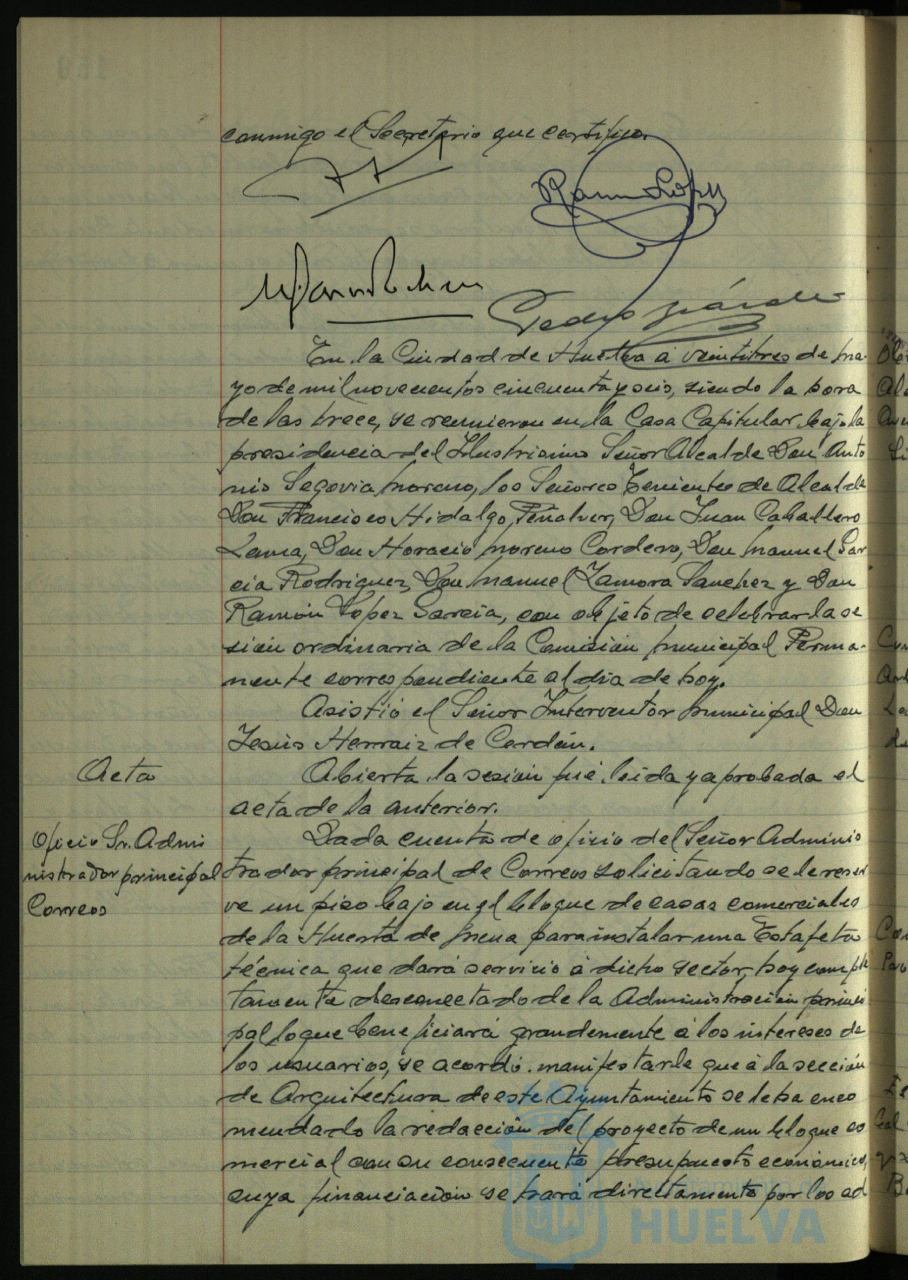 conmigo el Secretario que certifico.
Ramon López
Pedro
En la Ciudad de Huelva a veintitres de ma-
yo de mil novecientos cincuenta y seis, siendo la hora
de las trece, se reunieron en la Casa Capitular bajo la
presidencia del Ilustrisimo Señor Alcalde Don Anto
nio Segovia Moreno, los Señores Tenientes de Alcalde
Don Francisco Hidalgo Peñalver, Don Juan Caballero
Lama, Don Horacio Moreno Cordero, Don Manuel Gar
cia Rodriguez, Don Manuel Zamora Sanchez y Don
Ramón López García, con objeto de celebrar la se
sión ordinaria de la Comisión Municipal Perma-
nente correspondiente al dia de hoy.
Asistió el Señor Interventor Municipal Don
Jesús Herraiz de Cerdán.
Acta
Abierta la sesión fué leida y aprobada el
acta de la anterior.
Oficio Sr. Admi
nistrador principal
Correos
Dada cuenta de oficio del Señor Adminis
trador principal de Correos solicitando se le reser
ve un piso bajo en el bloque de casas comerciales
de la Huerta de Mena para instalar una Estafeta
técnica que dará servicio á dicho sector, hoy comple
tamente desconectado de la Administración princi
pal lo que beneficiará grandemente á los intereses de
los usuarios, se acordó manifestarle que á la sección
de Arquitectura de este Ayuntamiento se le ha enco
mendado la redacción del proyecto de un bloque co
mercial con su consecuente presupuesto económico,
cuya financiación se hará directamente por los ad
Ayuntamiento de
HUELVA